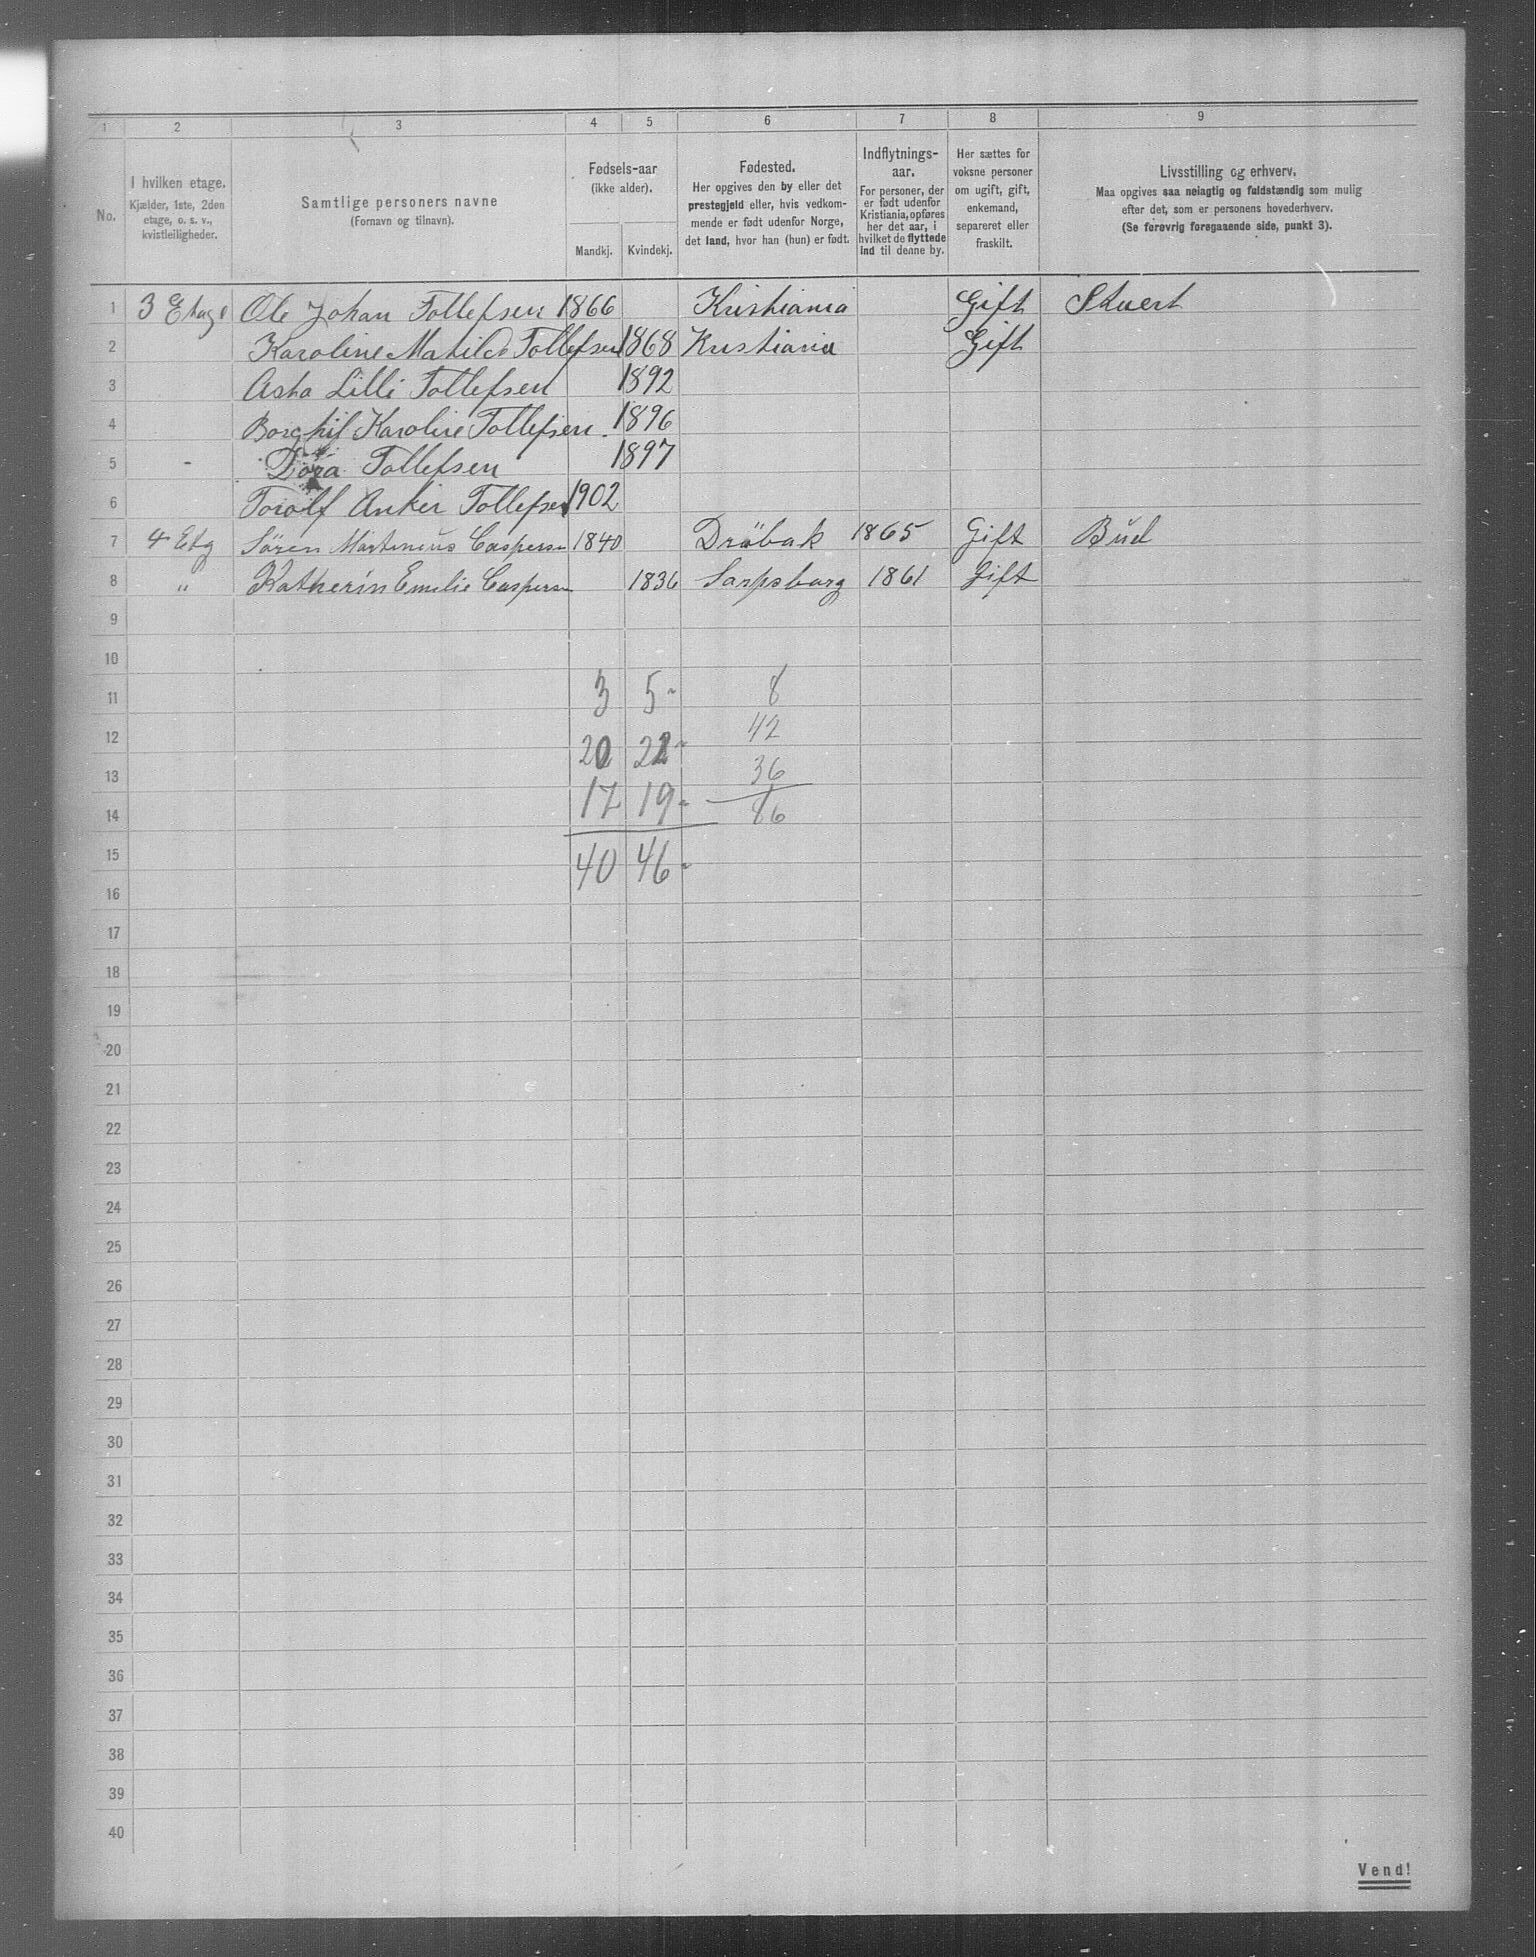 1 2 3 4 5 6 7 8 9
No.
I hvilken etage.
Kjælder, 1ste, 2den
etage, o. s. v.,
kvistleiligheder.
Samtlige personers navne
(Fornavn og tilnavn).
Fødsels-aar
(ikke alder).
Mandkj. Kvindekj.
Fødested.
Her opgives den by eller det
prestegjeld eller, hvis vedkom-
mende er født udenfor Norge,
det land, hvor han (hun) er født.
Indflytnings-
aar.
For personer, der
er født udenfor
Kristiania, opføres
her det aar, i
hvilket de flyttede
ind til denne by.
Her sættes for
voksne personer
om ugift, gift,
enkemand,
separeret eller
fraskilt.
Livsstilling og erhverv.
Maa opgives saa nøiagtig og fuldstændig som mulig
efter det, som er personens hovederhverv.
(Se forøvrig foregaaende side, punkt 3).
1 3 Etage Ole Johan Tollefsen 1866 Kristiania Gift Stuert
2 Karoline Matilde Tollefsen 1868 Kristiania Gift
3 Asta Lilli Tollefsen 1892
4 Borghil Karoline Tollefsen. 1896
5 - Dora Tollefsen 1897
6 Torolf Anker Tollefsen 1902
7 4 Etg Sören Martenius Caspersen 1840 Dröbak 1865 Gift Bud
8 " Katherin Emilie Caspersen 1836 Sarpsborg 1861 Gift
9
10
11 3 5 - 8
12 20 22 - 42
13 36
14 17 19 - 86
15 40 46 -
16
17
18
19
20
21
22
23
24
25
26
27
28
29
30
31
32
33
34
35
36
37
38
39
40
Vend!